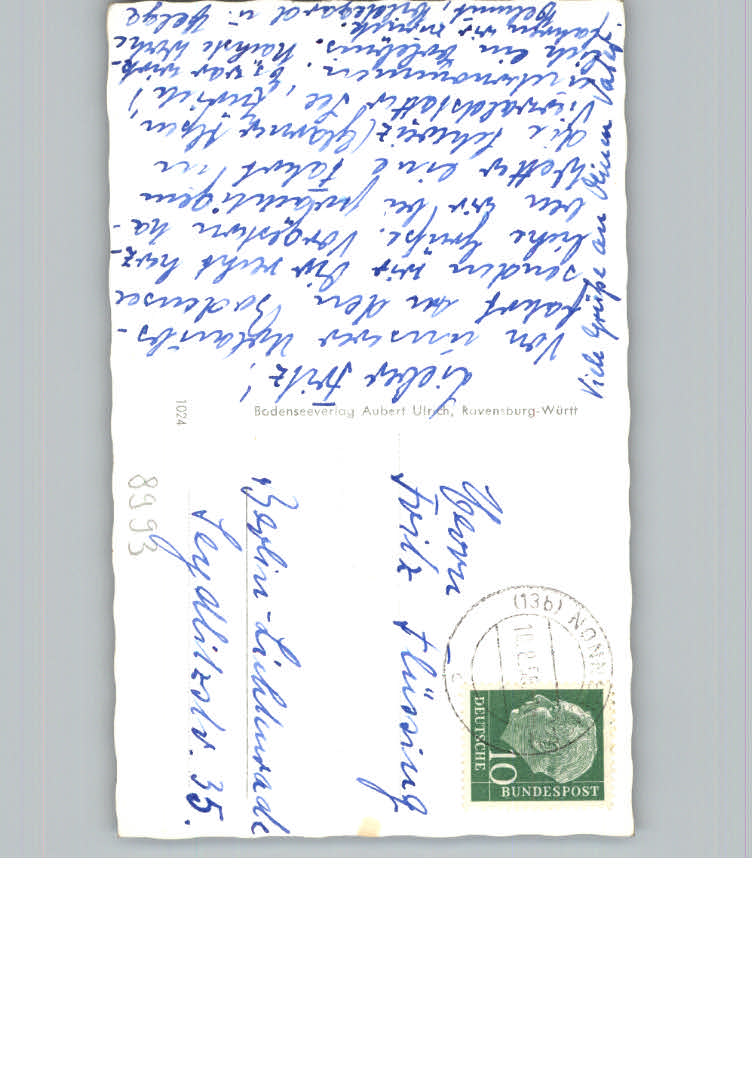 Lieber Fritz!
Von unserer Urlaubs-
fahrt an den Bodensee
senden wir Dir recht herz-
liche Grüße. Vorgestern ha-
ben wir bei prächtigem
Wetter eine Fahrt in
die Schweiz (Glarner Alpen,
Vierwaldstätter See, Zürich)
unternommen. Es war wirk-
lich ein Erlebnis. Nächste Woche
fahren wir zurück.
Helmut, Hildegard u. Helga
Viele Grüße an Deinen Vater
Bodenseeverlag Aubert Ulrich, Ravensburg-Württ
1024
8993
Herrn
Fritz Flüssing
Berlin-Lichtenrade
Seydlitzstr. 35.
(13b) NONNE
DEUTSCHE
BUNDESPOST
10